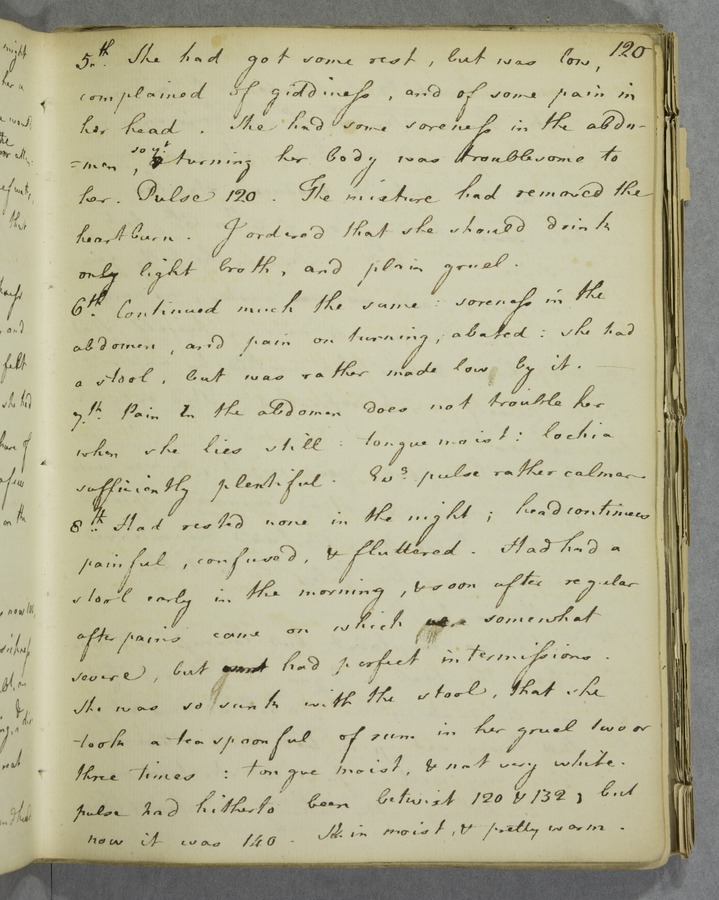 120
5.th She had got some rest, but was low,
complained of giddiness, and of some pain in
her head. She had some soreness in the abdo-
=men, so yt turning her body was troublesome to
her. Pulse 120. The mixture had removed the
heartburn. I ordered that she should drink
only light broth, and plain gruel.
6th. Continued much the same: soreness in the
abdomen, and pain on turning, abated: she had
a stool, but was rather made low by it. —
7.th Pain In the abdomen does not trouble her
when she lies still: tongue moist: lochia
sufficiently plentiful. Evg pulse rather calmer
8.th Had rested none in the night; head continues
painful, confused, & fluttered. Had had a
stool early in the morning, & soon after regular
after pains came on which were somewhat
severe, but had perfect intermissions.
She was so sunk with the stool, that she
took a teaspoonful of rum in her gruel two or
three times: tongue moist, & not very white.
pulse had hitherto been betwixt 120 & 132, but
now it was 140. Skin moist, & pretty warm.